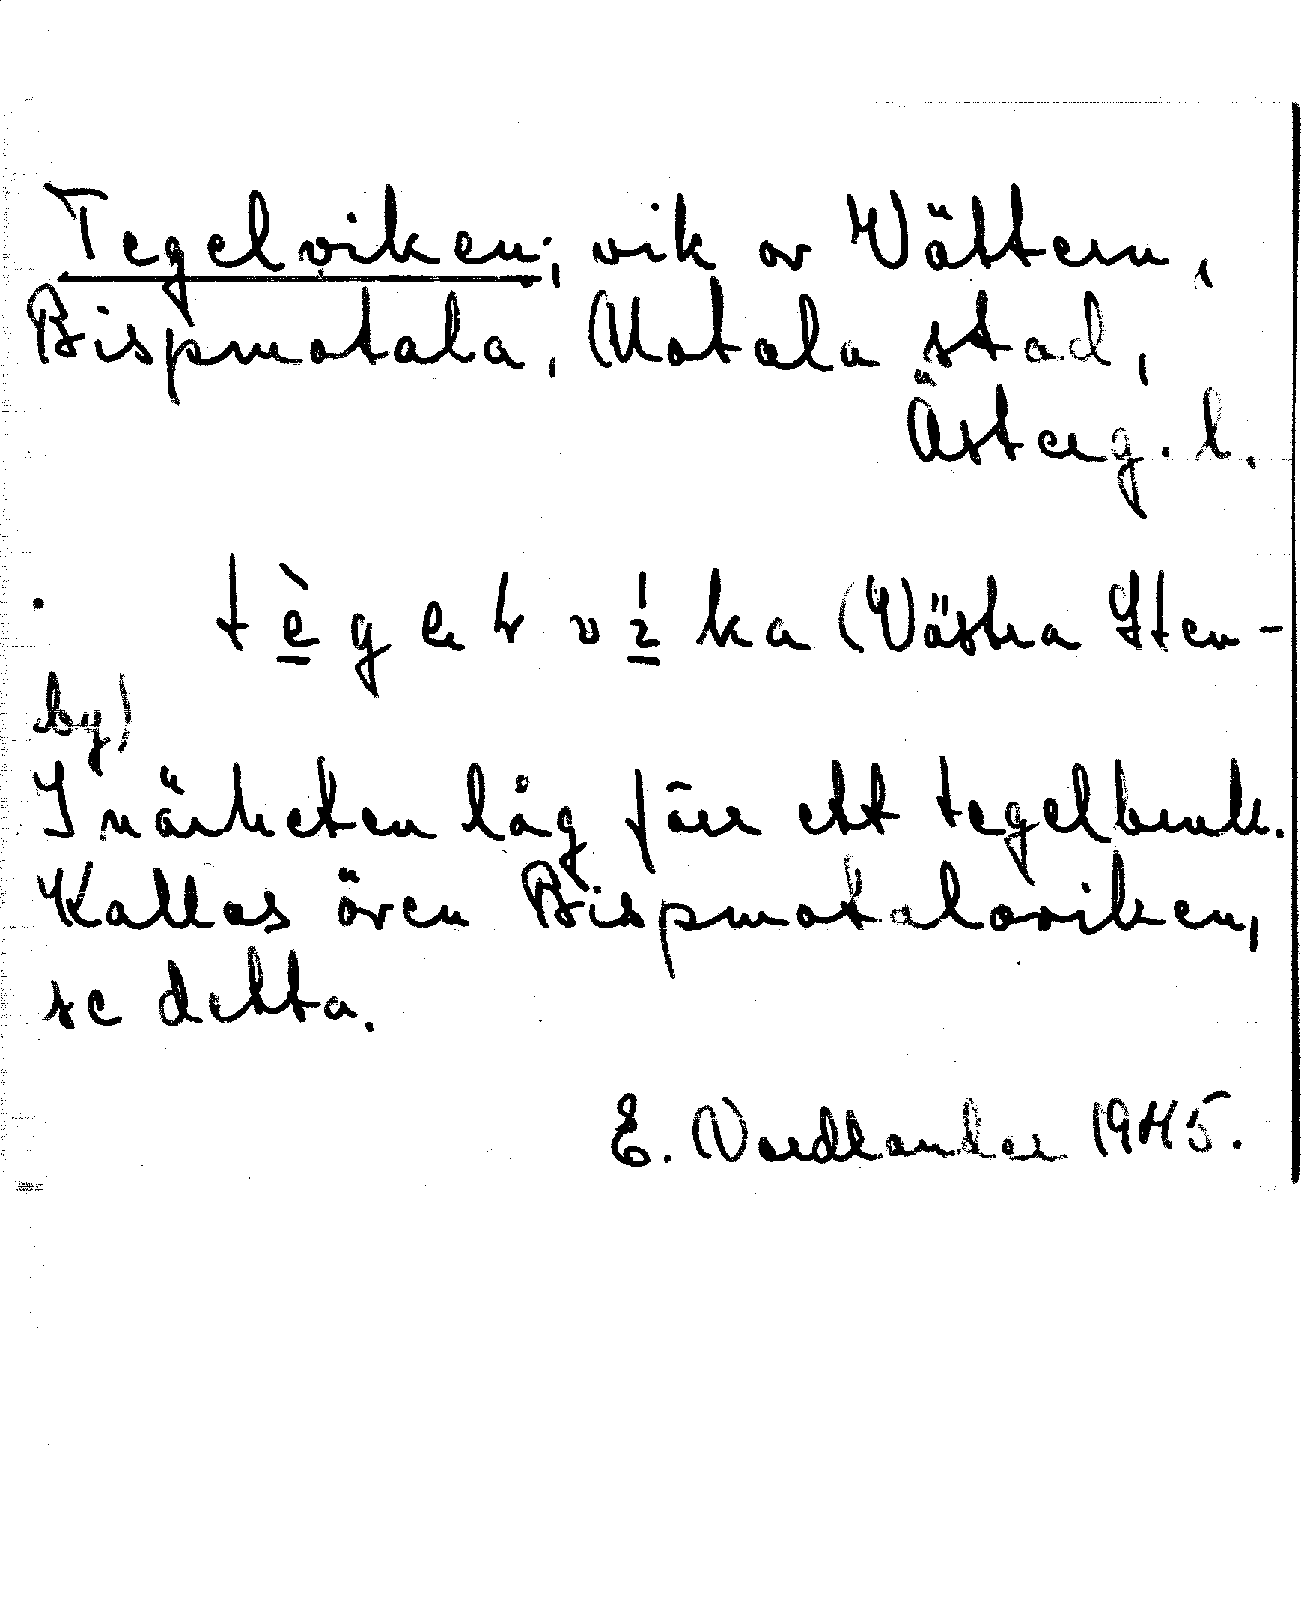 Tegelviken, vik av Vättern,
Bispmotala, Motala stad,
Österg. l.
(Västra Sten-
by)
I närheten låg förr ett tegelbruk.
Kallas även Bispmotalaviken,
se detta.
E. Nordlander 1945.